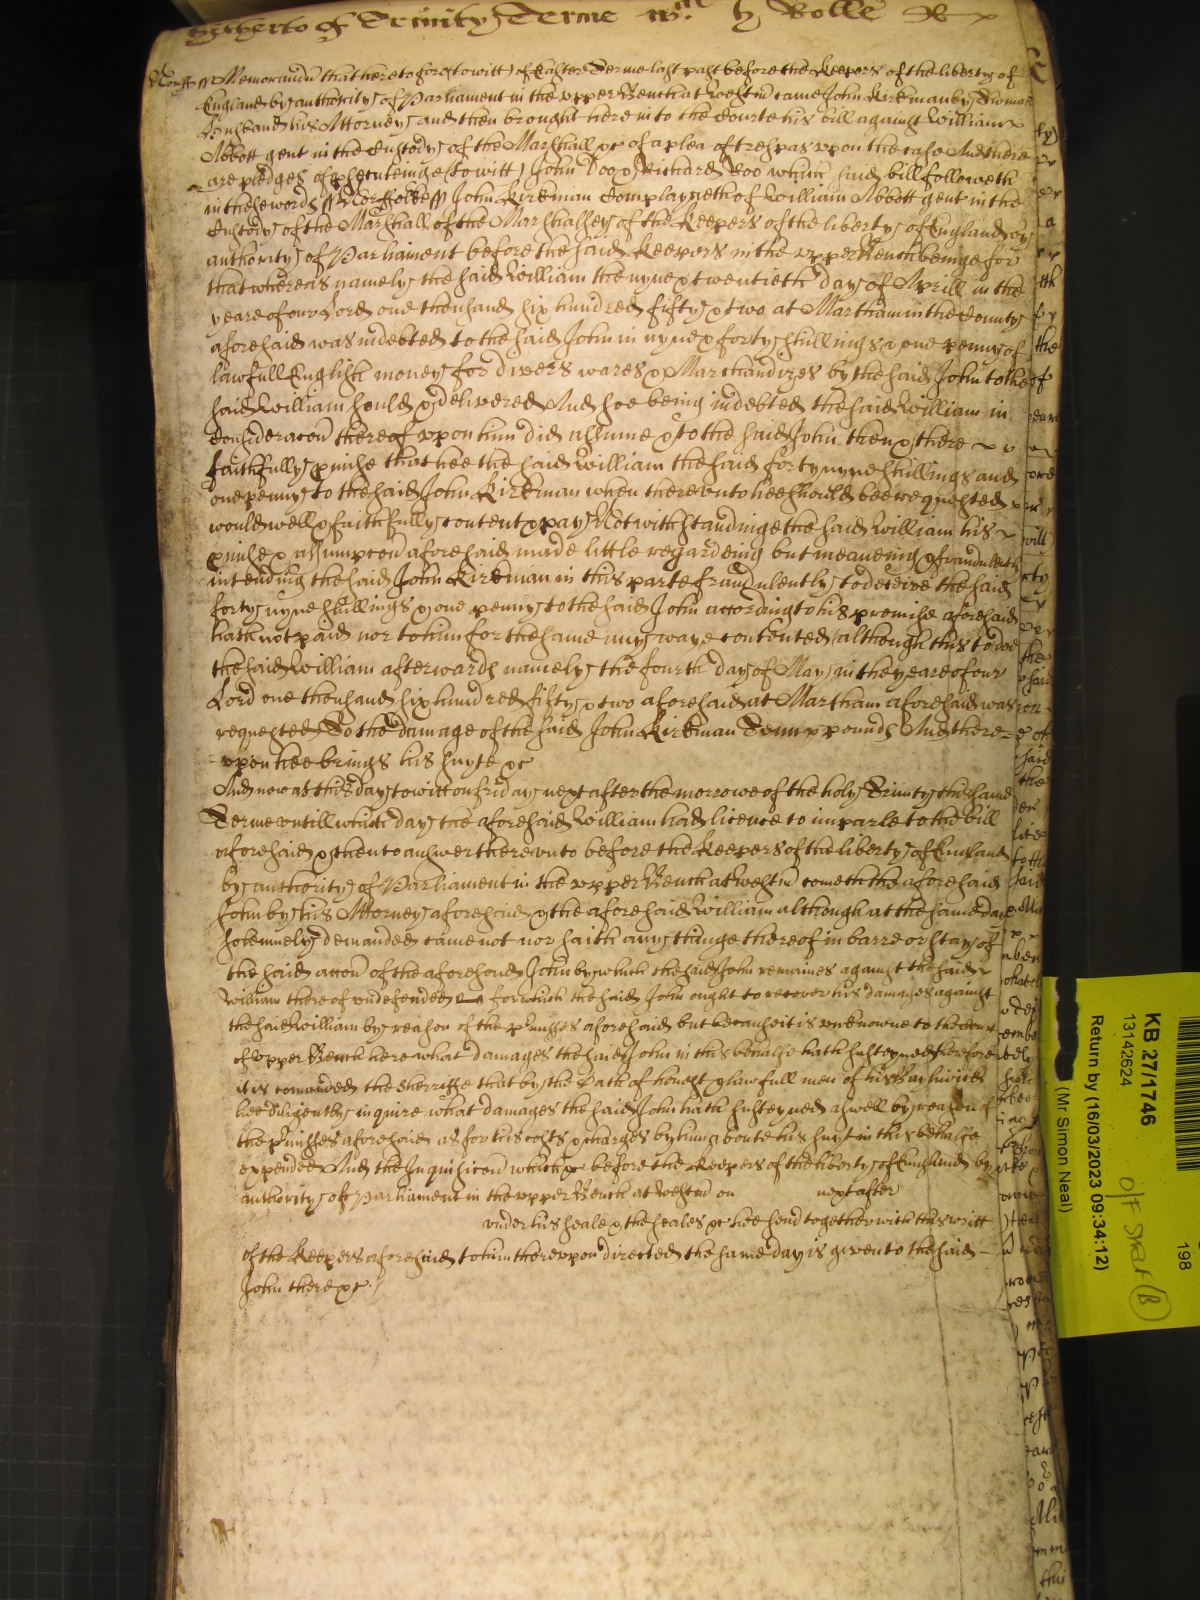 of Trinity Terme w:th h Rolle
Norff ss Memorandu that heretofore (to witt) of Easter Terme last past before the Keepers of the liberty of
England by authority of Parliament in the upper Bench at Westm came John Kirkman by Thomas
his Attorney and then brought here into the Courte his bill against William
Abbott gent in the Custody of the Marshall &c of a plea of trespas upon the case And there
are pledges of p̱secuteinge (to witt) John Doo & Richard Roo which said bill followeth
in these words ss Norffolke ss John Kirkman Complayneth of William Abbott gent in the
Custody of the Marshall of the Marshalsey of the Keepers of the liberty of England by
authority of Parliament before the said Keepers in the upper Bench beinge for
that whereas namely the said William the nyne & twentieth day of Aprill in the
yeare of our Lord one thousand six hundred fifty & two at Martham in the County
aforesaid was indebted to the said John in nyne & forty shillings & one penny of
lawfull English money for divers wares & Marchandizes by the said John to the
said William sould & delivered And soe being indebted the said William in
Consideracon thereof upon him did assume & to the said John then & there
faithfully p̱mise that hee the said William the said forty nyne shillings and
one penny to the said John Kirkman when thereunto hee should bee requested
would well & faithfully content & pay Notwithstandinge the said William his
p̱mise & assumpcon aforesaid made little regardeing but meaneing & fraudulently
intending the said John Kirkman in this parte fraudulently to deceive the said
forty nyne shillings & one penny to the said John according to his promise aforesaid
hath not paid nor to him for the same any waye contented (although this to doe
the said William afterwards namely the fourth day of May in the yeare of our
Lord one thousand six hundred fifty & two aforesaid at Martham aforesaid was
requested To the damage of the said John Kirkman Tenn pounds And there
upon hee brings his suyte &c
And now at this day to witt on friday next after the morrowe of the holy Trinity this same
Terme untill which day the aforesaid William had licence to imparle to the bill
aforesaid & then to answer thereunto before the Keepers of the liberty of England
by authority of Parliament in the upper Bench at Westm cometh the aforesaid
John by his Attorney aforesaid & the aforesaid William although at the same day
solemnely demanded came not nor saith any thinge thereof in barre or stay of
the said accon of the aforesaid John by which the said John remaines against the said
William thereof undefended for which the said John ought to recover his damages against
the said William by reason of the p̱misses aforesaid but because it is unknowne to the Court
of upper Bench here what damages the said John in this behalfe hath susteyned Therefore
it is comanded the Sherriffe that by the Oath of honest & lawfull men of his Bayliwick
hee diligently inquire what damages the said John hath susteyned aswell by reason of
the p̱misses aforesaid as for his costs & charges by him about his suyt in this behalfe
expended And the Inquisicon which &c before the Keepers of the liberty of England by
authority of Parliament in the upper Bench at Westm on next after
under his seale & the seales &c hee send together with this writt
of the Keepers aforesaid to him thereupon directed the same day is given to the said
John there &c
KB 27/1746
13142624
Return by (16/03/2023 09:34:12)
(Mr Simon Neal)
198
O/F
(B)